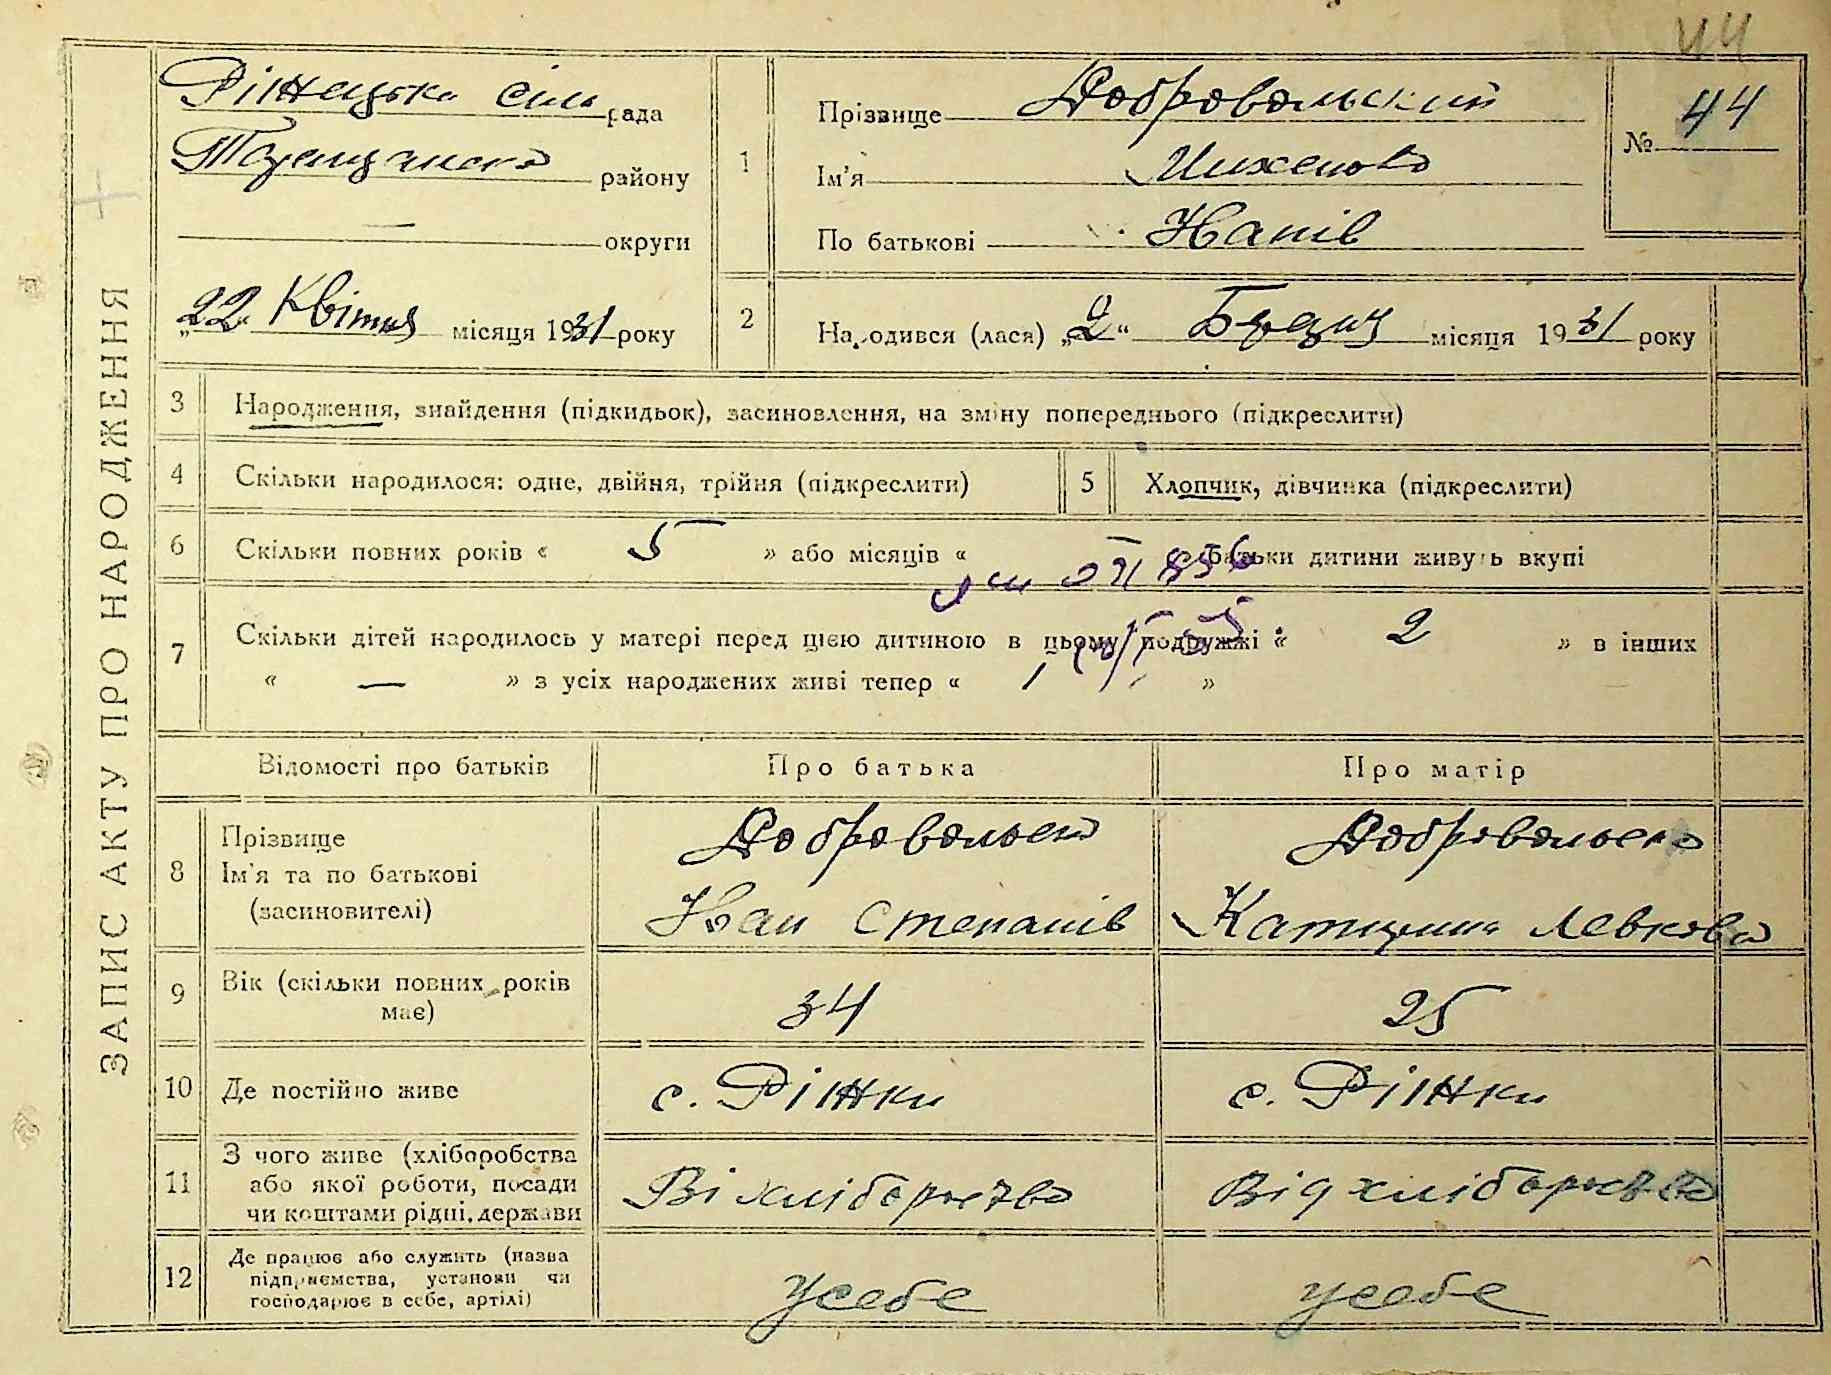 44
ЗАПИС АКТУ ПРО НАРОДЖЕННЯ
Ріжецька сіль рада
Таращанско району
— округи
„22“ Квітня місяця 1931 року
1
Прізвище Добровольский
Ім'я
По батькові Іванів
№ 44
2
Народився (лася) „2“ місяця 1931 року
3 Народження, знайдення (підкидьок), засиновлення, на зміну попереднього (підкреслити)
4 Скільки народилося: одне, двійня, трійня (підкреслити)
5 Хлопчик, дівчинка (підкреслити)
6 Скільки повних років « 5 » або місяців « — батьки дитини живуть вкупі
7 Скільки дітей народилось у матері перед цією дитиною в цьому подружжі « 2 » в інших
« — » з усіх народжених живі тепер « »
Відомості про батьків Про батька Про матір
8 Прізвище
Ім'я та по батькові
(засиновителі)
Добровольско
Іван Степанів
Добровольско
Катерина Левкова
9 Вік (скільки повних років
має)
34
25
10 Де постійно живе с. Ріжки с. Ріжки
11 З чого живе (хліборобства
або якої роботи, посади
чи коштами рідні, держави
Від хліборобства
12 Де працює або служить (назва
підприємства, установи чи
господарює в себе, артілі)
усебе
усебе